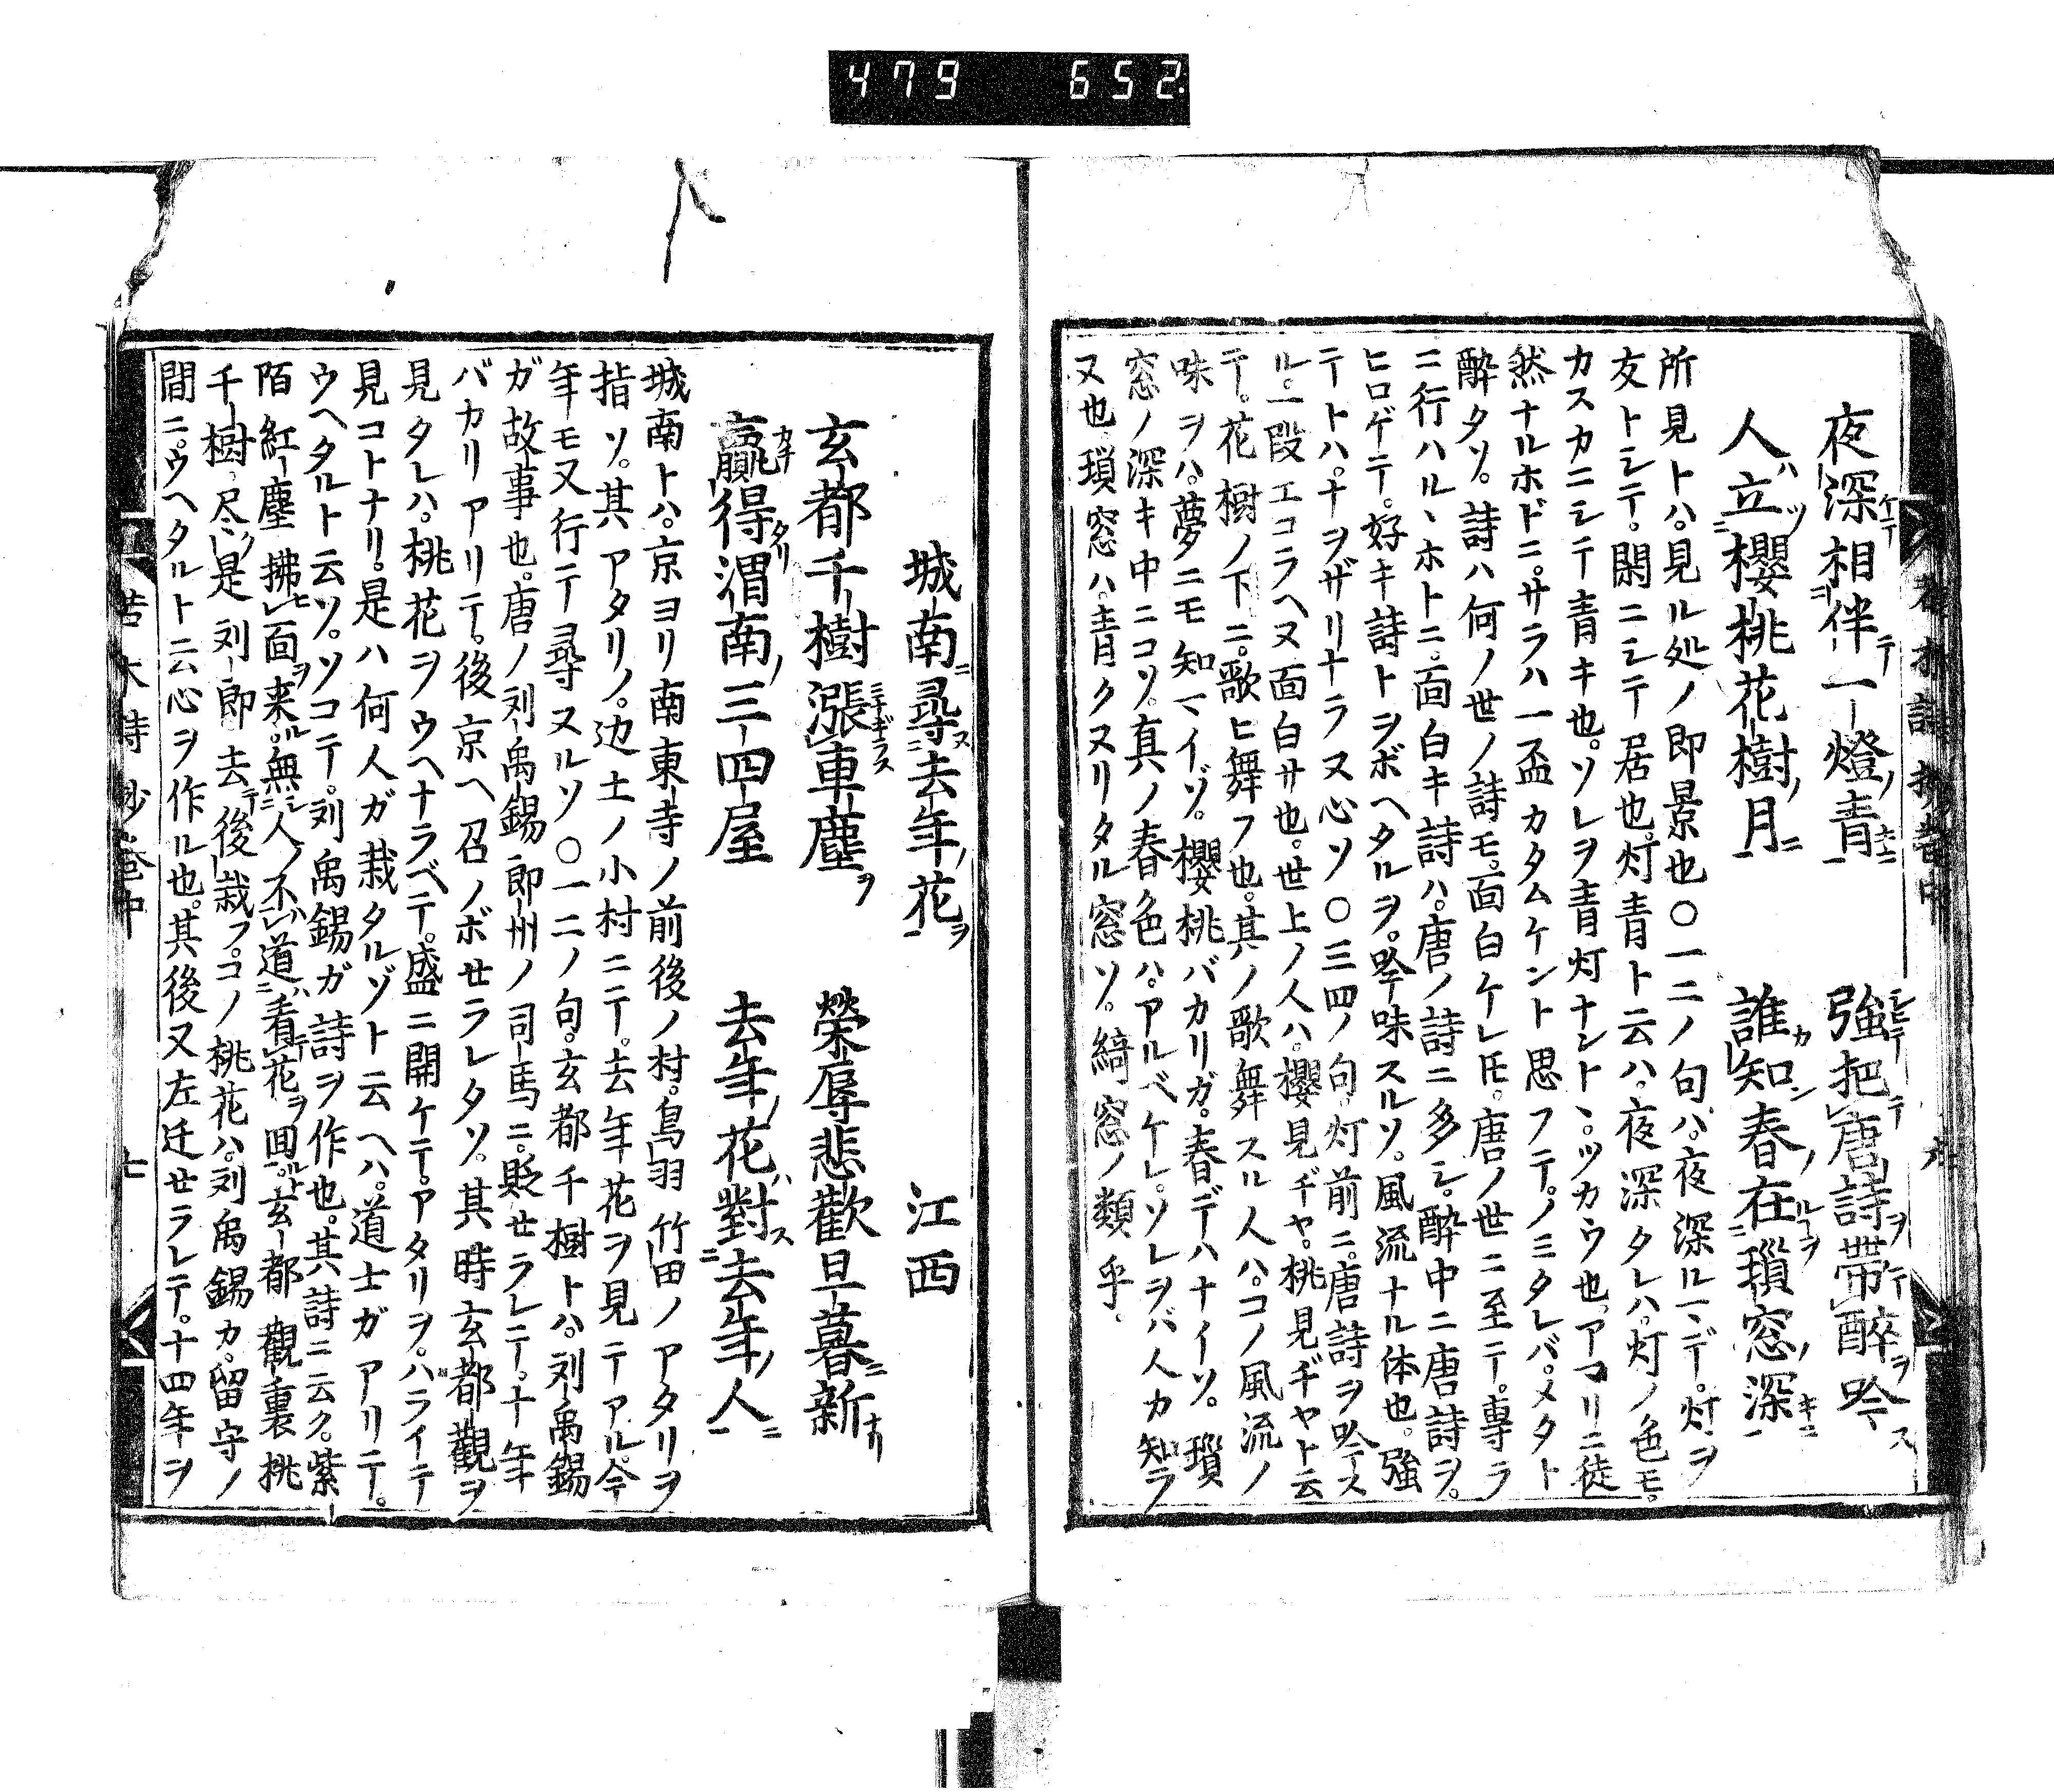 479 652
夜深相伴一燈青 強把唐詩帶醉吟
人立櫻桃花樹月 誰知春在瑣窓深
所見トハ。見ル処ノ即景也〇一二ノ句ハ。夜深ルマデ。灯ヲ
友トシテ。閑ニシテ居也。灯青ト云ハ。夜深タレハ。灯ノ色モ。
カスカニシテ青キ也。ソレヲ青灯ナント丶。ツカウ也。アマリニ徒
然ナルホドニ。サラハ一盃カタムケント思フテ。ノミタレバ。メタト
醉タソ。詩ハ何ノ世ノ詩モ。面白ケレ𪜈。唐ノ世ニ至テ。專ラ
ニ行ハル丶ホトニ。面白キ詩ハ。唐ノ詩ニ多シ。醉中ニ唐詩ヲ。
ヒロゲテ。好キ詩トヲボヘタルヲ。吟味スルソ。風流ナル体也。強
テトハ。ナヲザリナラヌ心ソ〇三四ノ句。灯前ニ。唐詩ヲ吟ス
ル。一段エコラヘヌ面白サ也。世上ノ人ハ。櫻見ヂヤ。桃見ヂヤト云
テ。花樹ノ下ニ。歌ヒ舞フ也。其ノ歌舞スル人ハ。コノ風流ノ
味ヲハ。夢ニモ知マイゾ。櫻桃バカリガ。春デハナイソ。瑣
窓ノ深キ中ニコソ。真ノ春色ハ。アルベケレ。ソレヲバ人カ知ラ
ヌ也。瑣窓ハ。青クヌリタル窓ソ。綺窓ノ類乎。
城南尋去年花 江西
玄都千樹漲車塵 榮辱悲歡旦暮新
贏得渭南三四屋 去年花對去年人
城南トハ。京ヨリ南東寺ノ前後ノ村。鳥羽竹田ノアタリヲ
指ソ。其アタリノ。辺土ノ小村ニテ。去年花ヲ見テアル。今
年モ又行テ尋ヌルソ〇一二ノ句。玄都千樹トハ。刘禹錫
ガ故事也。唐ノ刘禹錫郎州ノ司馬ニ。貶セラレテ。十年
バカリアリテ。後京ヘ召ノボセラレタソ。其時玄都觀ヲ
見タレハ。桃花ヲウヘナラベテ。盛ニ開ケテ。アタリヲ。ハライテ
見コトナリ。是ハ何人ガ栽タルゾト云ヘハ。道士ガアリテ。
ウヘタルト云ソ。ソコテ。刘禹錫ガ詩ヲ作也。其詩ニ云ク。紫
陌紅塵拂面来。無人不道看花囬。玄都觀裏桃
千樹。尽是刘郎去後栽フ。コノ桃花ハ。刘禹錫カ。留守ノ
間ニ。ウヘタルト云心ヲ作ル也。其後又左迁セラレテ。十四年ヲ
七